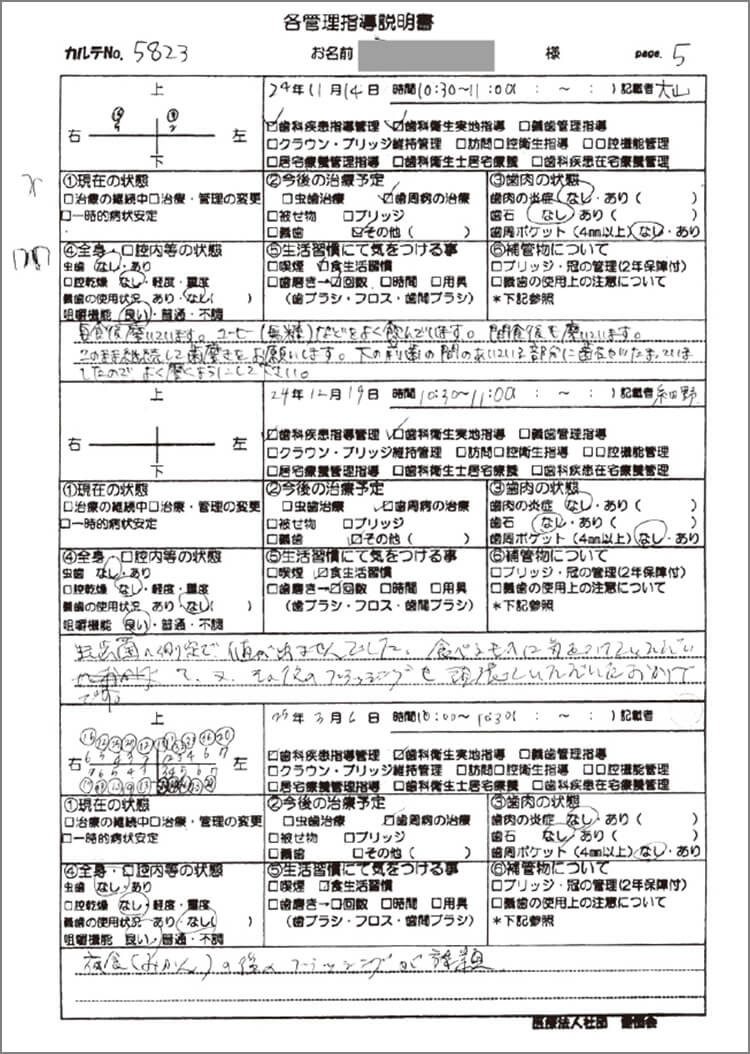 各管理指導説明書
カルテNo. 5823 お名前 様 page. 5
上
右 左
下
24年11月14日 時間10:30～11:00( : ～ : ) 記載者 大山
☑歯科疾患指導管理 ☑歯科衛生実地指導 □義歯管理指導
□クラウン・ブリッジ維持管理 □訪問□腔衛生指導 □□腔機能管理
□居宅療養管理指導 □歯科衛生士居宅療養 □歯科疾患在宅療養管理
①現在の状態
□治療の継続中□治療・管理の変更
□一時的病状安定
②今後の治療予定
□虫歯治療 ☑歯周病の治療
□被せ物 □ブリッジ
□義歯 ☑その他( )
③歯肉の状態
歯肉の炎症 なし・あり( )
歯石 なし あり( )
歯周ポケット(4mm以上) なし・あり
④全身・□腔内等の状態
虫歯 なし・あり
□腔乾燥 なし・軽度・重度
義歯の使用状況 あり・なし( )
咀嚼機能 良い・普通・不調
⑤生活習慣にて気をつける事
□喫煙 ☑食生活習慣
□歯磨き→☑回数 □時間 □用具
(歯ブラシ・フロス・歯間ブラシ)
⑥補管物について
□ブリッジ・冠の管理(2年保障付)
□義歯の使用上の注意について
*下記参照
毎食後磨いています。コーヒー(無糖)などをよく飲んでいます。間食後も磨いています。
このまま継続して歯磨きをお願いします。下の前歯の間のあいている部分に歯石がたまっていま
したので、よく磨くようにして下さい。
上
右 左
下
24年12月19日 時間 10:30～11:00( : ～ : ) 記載者
☑歯科疾患指導管理 ☑歯科衛生実地指導 □義歯管理指導
□クラウン・ブリッジ維持管理 □訪問□腔衛生指導 □□腔機能管理
□居宅療養管理指導 □歯科衛生士居宅療養 □歯科疾患在宅療養管理
①現在の状態
□治療の継続中□治療・管理の変更
□一時的病状安定
②今後の治療予定
□虫歯治療 ☑歯周病の治療
□被せ物 □ブリッジ
□義歯 ☑その他( )
③歯肉の状態
歯肉の炎症 なし・あり( )
歯石 なし・あり( )
歯周ポケット(4mm以上) なし・あり
④全身・□腔内等の状態
虫歯 なし・あり
□腔乾燥 なし・軽度・重度
義歯の使用状況 あり なし( )
咀嚼機能 良い・普通・不調
⑤生活習慣にて気をつける事
□喫煙 ☑食生活習慣
□歯磨き→☑回数 □時間 □用具
(歯ブラシ・フロス・歯間ブラシ)
⑥補管物について
□ブリッジ・冠の管理(2年保障付)
□義歯の使用上の注意について
*下記参照
菌の測定で値が出ませんでした。食べるものに気をつけていただい
て、又、その後のブラッシングも頑張っていただいたおかげ
です。
上
右 左
下
25年3月6日 時間10:00～10:30( : ～ : ) 記載者
☑歯科疾患指導管理 ☑歯科衛生実地指導 □義歯管理指導
□クラウン・ブリッジ維持管理 □訪問□腔衛生指導 □□腔機能管理
□居宅療養管理指導 □歯科衛生士居宅療養 □歯科疾患在宅療養管理
①現在の状態
□治療の継続中□治療・管理の変更
□一時的病状安定
②今後の治療予定
□虫歯治療 ☑歯周病の治療
□被せ物 □ブリッジ
□義歯 □その他( )
③歯肉の状態
歯肉の炎症 なし・あり( )
歯石 なし・あり( )
歯周ポケット(4mm以上) なし・あり
④全身・□腔内等の状態
虫歯 なし・あり
□腔乾燥 なし・軽度・重度
義歯の使用状況 あり なし( )
咀嚼機能 良い・普通・不調
⑤生活習慣にて気をつける事
□喫煙 ☑食生活習慣
□歯磨き→□回数 □時間 □用具
(歯ブラシ・フロス・歯間ブラシ)
⑥補管物について
□ブリッジ・冠の管理(2年保障付)
□義歯の使用上の注意について
*下記参照
夜食(みかん)の後のブラッシングが課題
医療法人社団